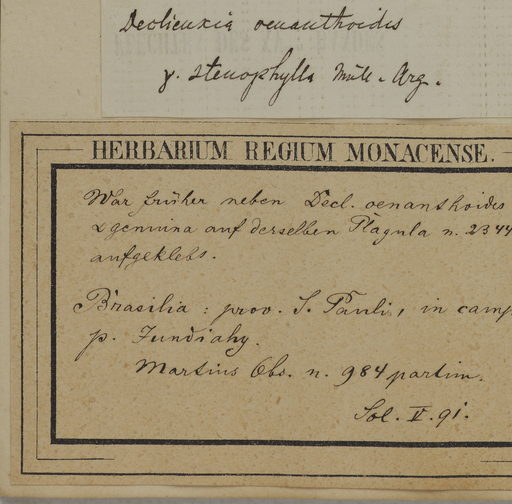 Declieuxia oenanthoidis
γ. stenophylla Müll. Arg.
HERBARIUM REGIUM MONACENSE.
War früher neben Decl. oenanthoides
α genuina auf derselben Plagula n. 2344
aufgeklebt.
Brasilia: prov. S. Pauli, in camp
p. Jundiahy.
Martius Obs. n. 984 partim.
Sol. V. 91.